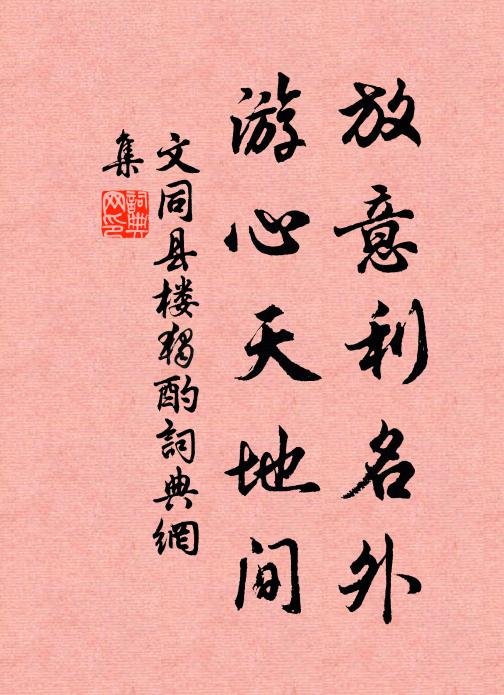 放意利名外
游心天地间
文同县楼独酌詞典網
集
詞典网印